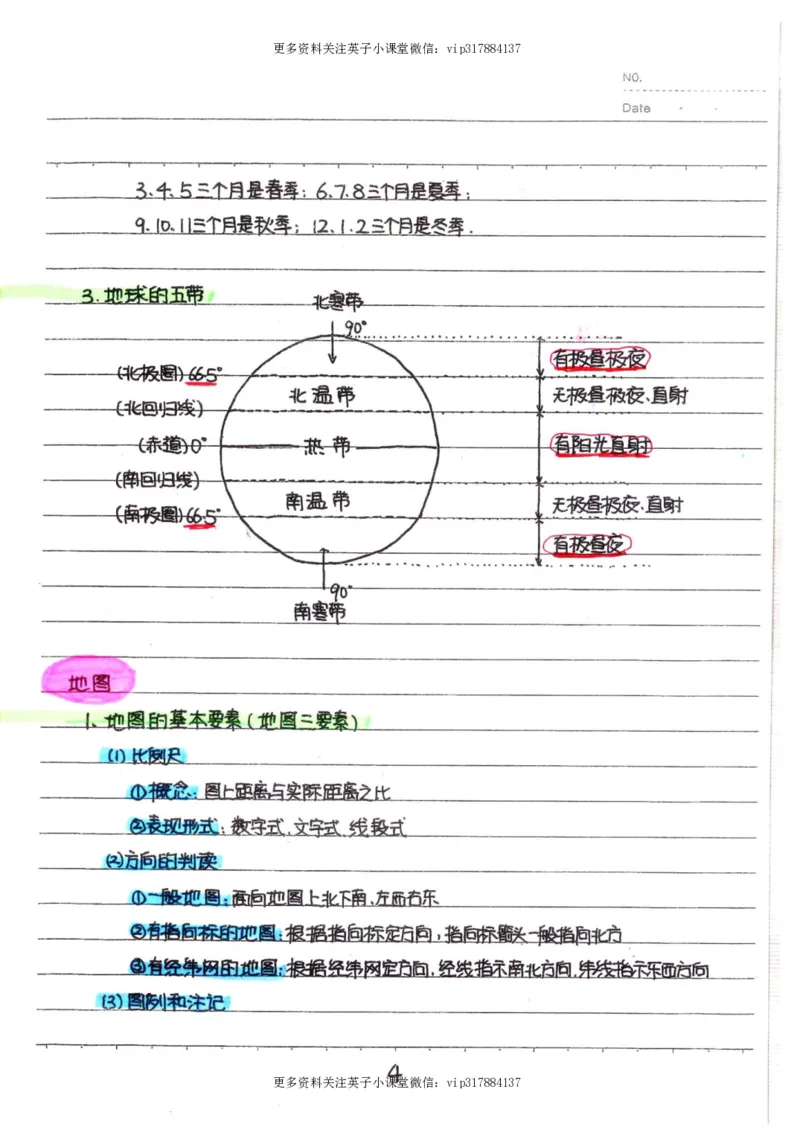 更多资料关注英子小课堂微信：vip317884137
NO.
Date
3、4、5三个月是春季；6、7、8三个月是夏季；
9、10、11三个月是秋季；12、1、2三个月是冬季．
3.地球的五带
北寒带
90°
有极昼极夜
(北极圈)66.5°
北温带
无极昼极夜、直射
(北回归线)
(赤道)0°
热带
有阳光直射
(南回归线)
南温带
无极昼极夜、直射
(南极圈)66.5°
有极昼夜
90°
南寒带
地图
1、地图的基本要素(地图三要素)
(1)比例尺
①概念：图上距离与实际距离之比
②表现形式：数字式、文字式、线段式
(2)方向的判读
①一般地图：面向地图上北下南、左西右东
②有指向标的地图：根据指向标定方向，指向标箭头一般指向北方
③有经纬网的地图：根据经纬网定方向，经线指示南北方向，纬线指示东西方向
(3)图例和注记
4
更多资料关注英子小课堂微信：vip317884137